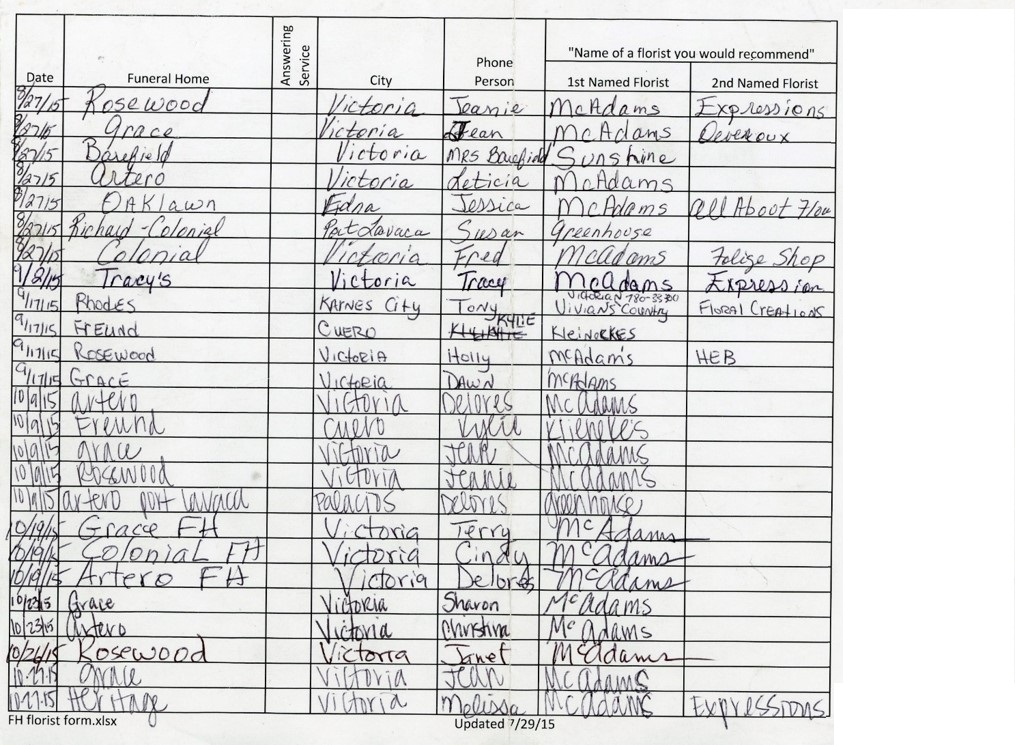 "Name of a florist you would recommend"
Date Funeral Home Answering Service City Phone Person 1st Named Florist 2nd Named Florist
8/27/15 Rosewood Victoria Jeanie McAdams Expressions
8/27/15 Grace Victoria Jean McAdams Devereux
8/27/15 Barefield Victoria MRS Barefield Sunshine
8/27/15 Artero Victoria Leticia McAdams
8/27/15 OAKlawn Edna Jessica McAdams All About Flow
8/27/15 Richard-Colonial Port Lavaca Susan Greenhouse
8/27/15 Colonial Victoria Fred McAdams Folige Shop
9/2/15 Tracy's Victoria Tracy McAdams Expression
9/17/15 Rhodes KARNES City Tony Vivians Country Floral Creations
9/17/15 Freund CUERO KYLIE Kleinockes
9/17/15 Rosewood Victoria Holly McAdams HEB
9/17/15 GRACE Victoria DAWN McAdams
10/9/15 artero Victoria Delores McAdams
10/9/15 Freund Cuero Kylie Klieneke's
10/9/15 grace Victoria Jean McAdams
10/9/15 Rosewood Victoria Jeanie McAdams
10/9/15 artero port lavaca Palacios Delores greenhouse
10/19/15 Grace FH Victoria Terry McAdams
10/19/15 Colonial FH Victoria Cindy McAdams
10/19/15 Artero FH Victoria Delores McAdams
10/23/15 Grace Victoria Sharon McAdams
10/23/15 Artero Victoria Christina McAdams
10/26/15 Rosewood Victoria Janet McAdams
10-27-15 grace Victoria Jean McAdams
10-27-15 Heritage Victoria Melissa McAdams Expressions
FH florist form.xlsx Updated 7/29/15